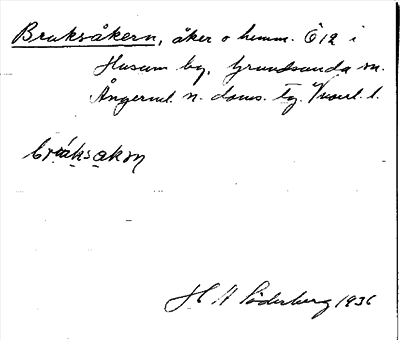 Bruksåkern, åker o hemm. Ö12 i
Husum by, Grundsunda sn.
Ångerml. n. doms. tg. Vnorl. l.
bruksakɐn
H Söderberg 1936